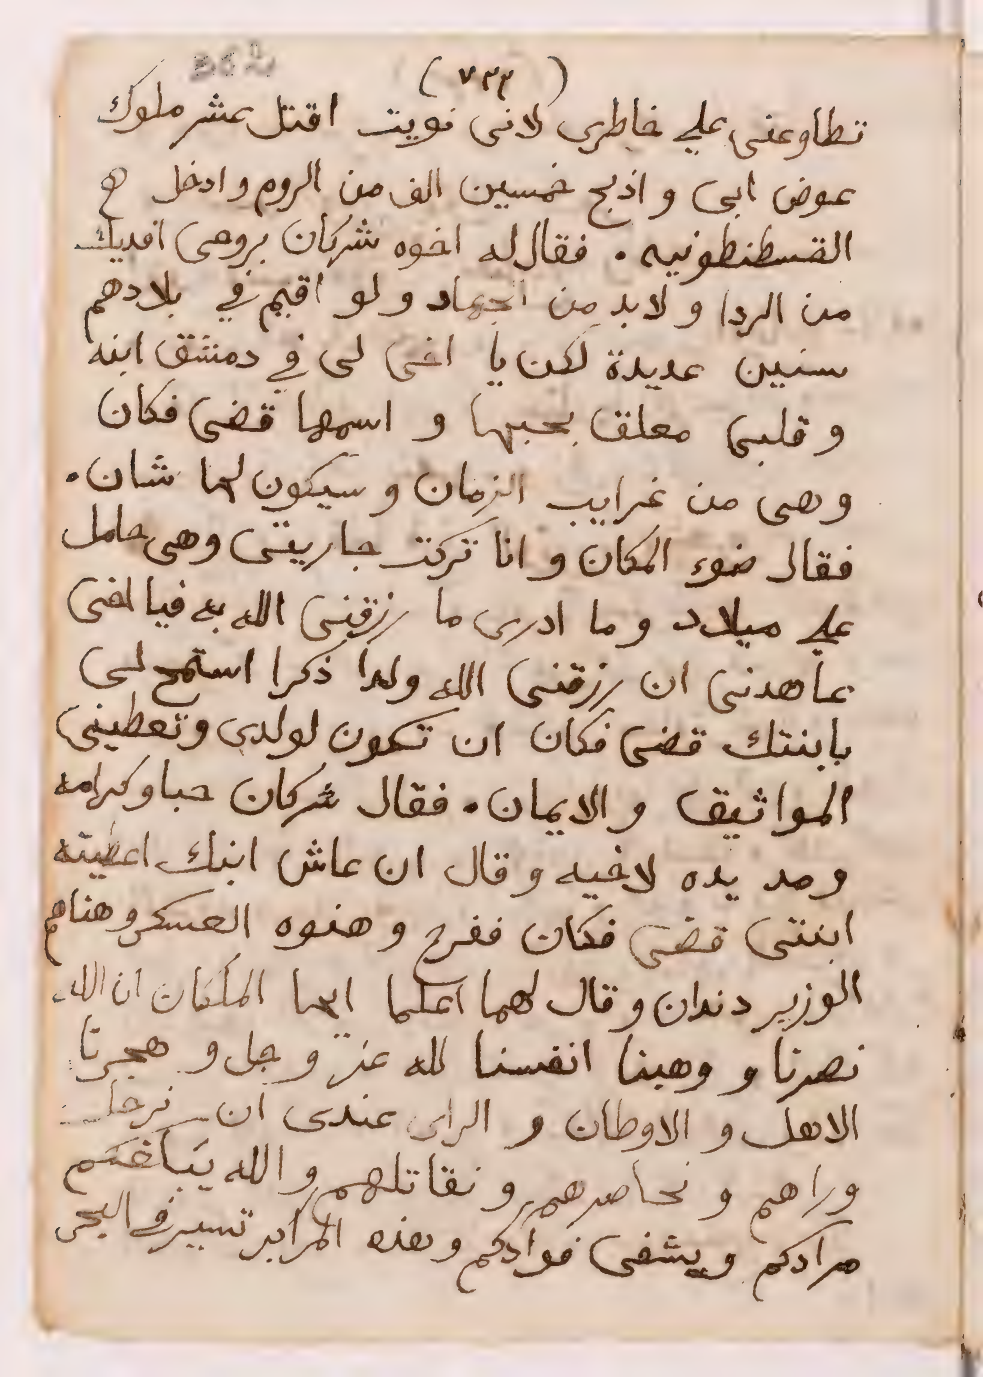 (٧٣٣)
تطاوعنى على خاطرى لانى نويت اقتل عشر ملوك
عوض ابى و اذبح خمسين الف من الروم و ادخل
القسطنطونيه . فقال له اخوه شركان بروحى افديك
من الردا و لابد من الجهاد و لو اقيم في بلادهم
سنين عديدة لكن يا اخى لى في دمشق ابنه
و قلبى معلق بحبها و اسمها قضى فكان
و هى من غرايب الزمان و سيكون لها شان .
فقال ضوء المكان و انا تركت جاريتى وهى حامل
على ميلاد و ما ادرى ما رزقنى الله به فيا اخى
عاهدنى ان رزقنى الله ولدا ذكرا استمح لى
بابنتك قضى فكان ان تكون لولدى و تعطينى
المواثيق و الايمان . فقال شركان حبا وكرامه
و مد يده لاخيه و قال ان عاش ابنك اعطيته
ابنتى قضى فكان ففرح و هنوه العسكر و هناهم
الوزير دندان و قال لهما اعلما ايها الملكان ان الله
نصرنا و وهبنا انفسنا لله عز و جل و هجرنا
الاهل و الاوطان و الراى عندى ان نرحل
وراهم و نحاصرهم و نقاتلهم و الله
مرادكم و يشفى فوادكم و هذه المراكب تسير في البحر